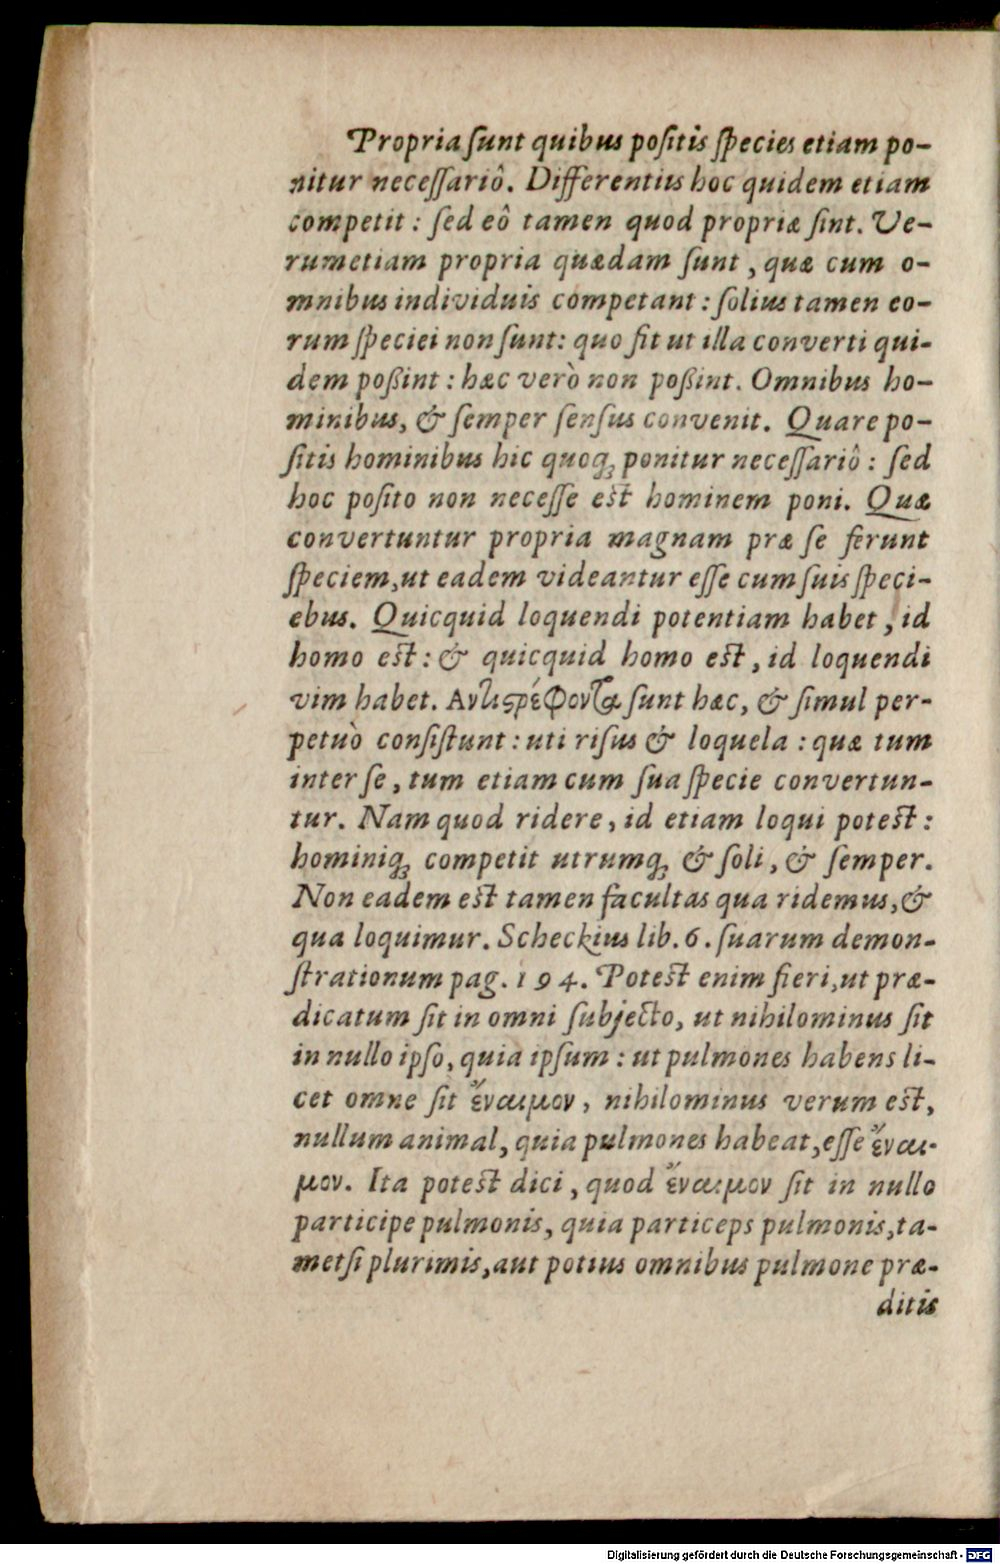 Propria ſunt quibus poſitis ſpecies etiam po-
nitur neceſſariô. Differentiis hoc quidem etiam
competit : ſed eô tamen quod propriæ ſint. Ve-
rumetiam propria quædam ſunt, quæ cum o-
mnibus individuis competant : ſolius tamen eo-
rum ſpeciei non ſunt: quo fit ut illa converti qui-
dem poßint : hæc verò non poßint. Omnibus ho-
minibus, & ſemper ſenſus convenit. Quare po-
ſitis hominibus hic quoq; ponitur neceſſariô : ſed
hoc poſito non neceſſe est hominem poni. Quæ
convertuntur propria magnam præ ſe ferunt
ſpeciem, ut eadem videantur eſſe cum ſuis ſpeci-
ebus. Quicquid loquendi potentiam habet, id
homo est : & quicquid homo est, id loquendi
vim habet. Αντιϛρέφοντα ſunt hæc, & ſimul per-
petuò conſiſtunt : uti riſus & loquela : quæ tum
inter ſe, tum etiam cum ſua ſpecie convertun-
tur. Nam quod ridere, id etiam loqui potest :
hominiq; competit utrumq; & ſoli, & ſemper.
Non eadem est tamen facultas qua ridemus, &
qua loquimur. Scheckius lib. 6. ſuarum demon-
ſtrationum pag. 194. Potest enim fieri, ut præ-
dicatum ſit in omni ſubjecto, ut nihilominus ſit
in nullo ipſo, quia ipſum : ut pulmones habens li-
cet omne ſit ἔναιμον, nihilominus verum est,
nullum animal, quia pulmones habeat, eſſe ἔναι-
μον. Ita potest dici, quod ἔναιμον ſit in nullo
participe pulmonis, quia particeps pulmonis, ta-
metſi plurimis, aut potius omnibus pulmone præ-
ditis
Digitalisierung gefördert durch die Deutsche Forschungsgemeinschaft - DFG